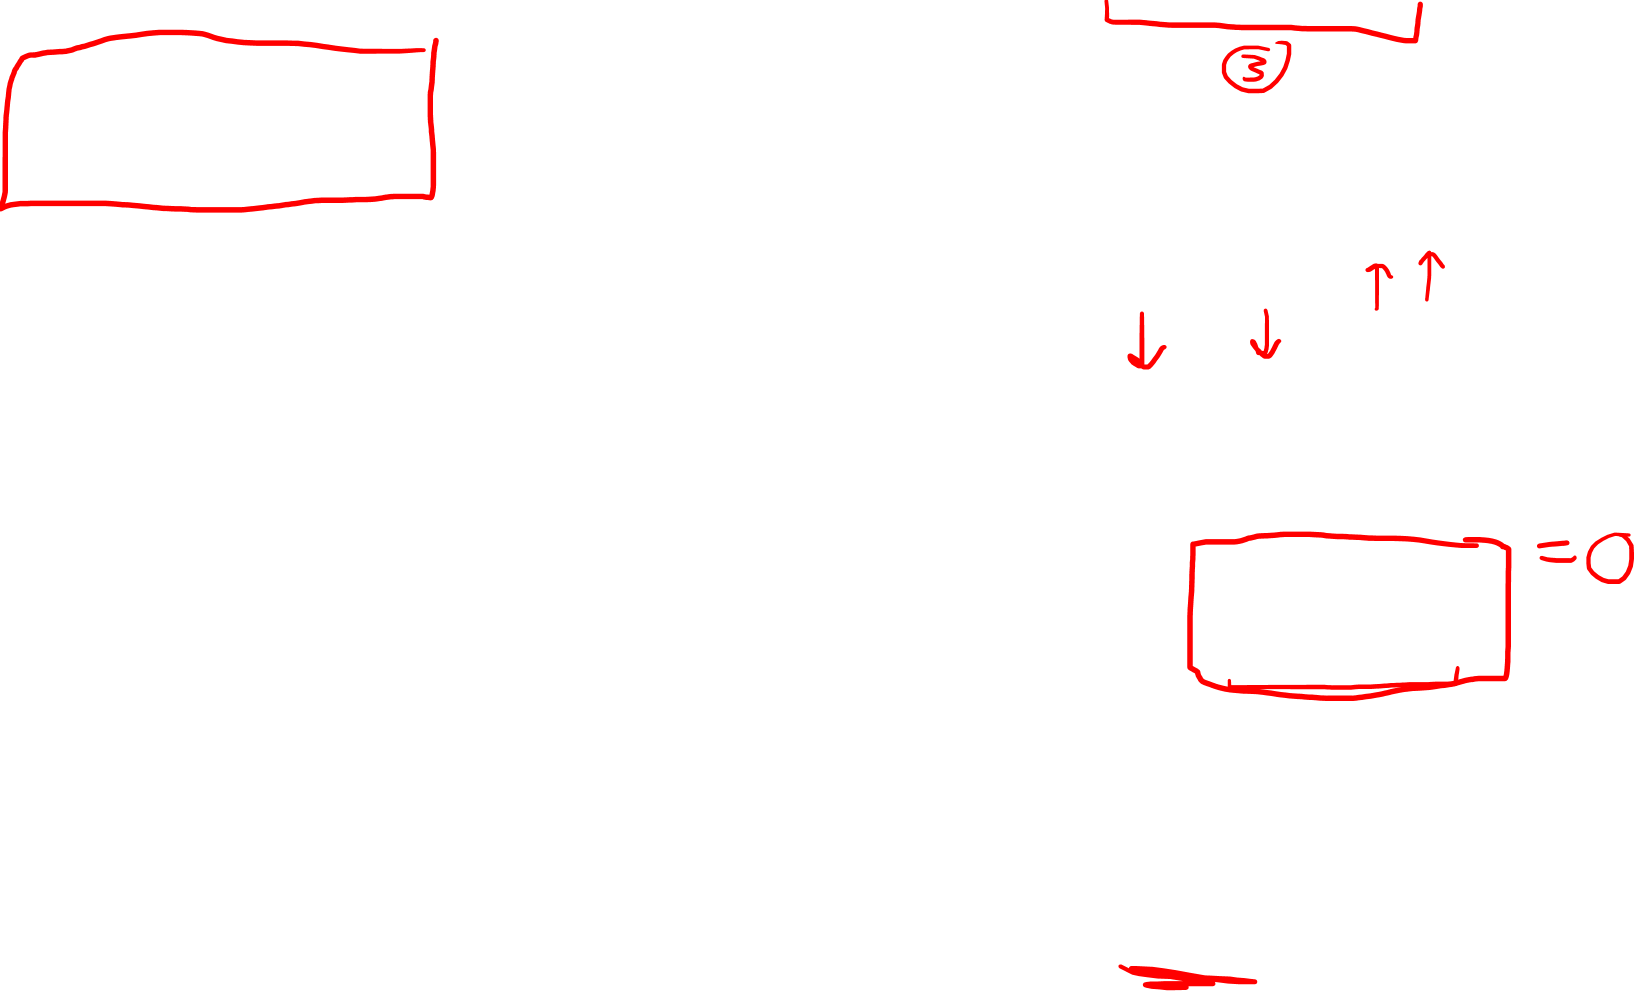 ③
↓ ↓ ↑ ↑
= 0